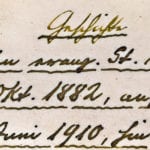 Geschichte
evang. St.
Okt. 1882, au
Juni 1910, hin